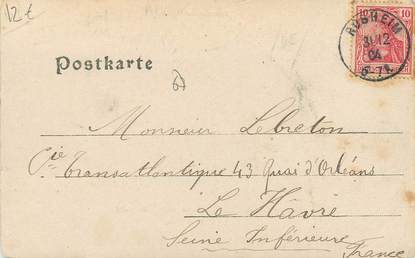 12 €
10 10
ROSHEIM
31.12
04
Postkarte
Monsieur Lebreton
Cie Transatlantique 43 Quai d'Orléans
Le Hâvre
Seine Inférieure
France